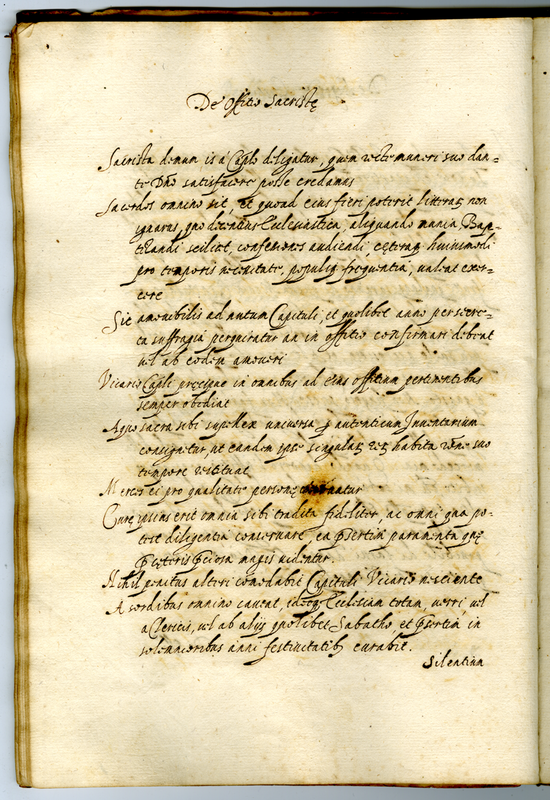 De Offitio Sacristę
Sacrista demum is á Caplo deligatur, quem recte muneri suo dan=
te Dño satisfacere posse credamus
Sacerdos omnino sit, et quoad eius fieri poterit litterarꝫ non
ignarus, quo decentius Ecclesiastica, aliquando munia, Bap=
tizandi scilicet, confessiones audiendi, cęterarꝫ huiusmodi
pro temporis necessitate, populiq frequentia, valeat exer=
cere
Sit amovibilis ad nutum Capituli, et quolibet anno per secre=
ta suffragia perquiratur an in offitio confirmari debeat
vel ab eodem amoveri
Vicario Capli pręcipue in omnibus ad eius offitium pertinentibus
semper obediat
A quo sacra sibi supellex universa ꝑ autenticum Inventarium
consignetur, ut eandem ipse singularꝫ rerꝫ habita rõne suo
tempore restituat
Merces ei pro qualitate personę
Curę ipsius erit omnia sibi tradita fideliter, ac omni qua po=
terit diligentia conservare, ea ꝑsertim paramenta quę
ꝑ cęteris ꝑciosa magis videntur.
Nihil penitus alteri comodabit Capituli Vicario nesciente
A sordibus omnino caveat, ideoq Ecclesiam totam, verri vel
a Clericis, vel ab alijs quolibet Sabatho et ꝑsertim in
solemnioribus anni festivitatibꝫ curabit.
Silentium